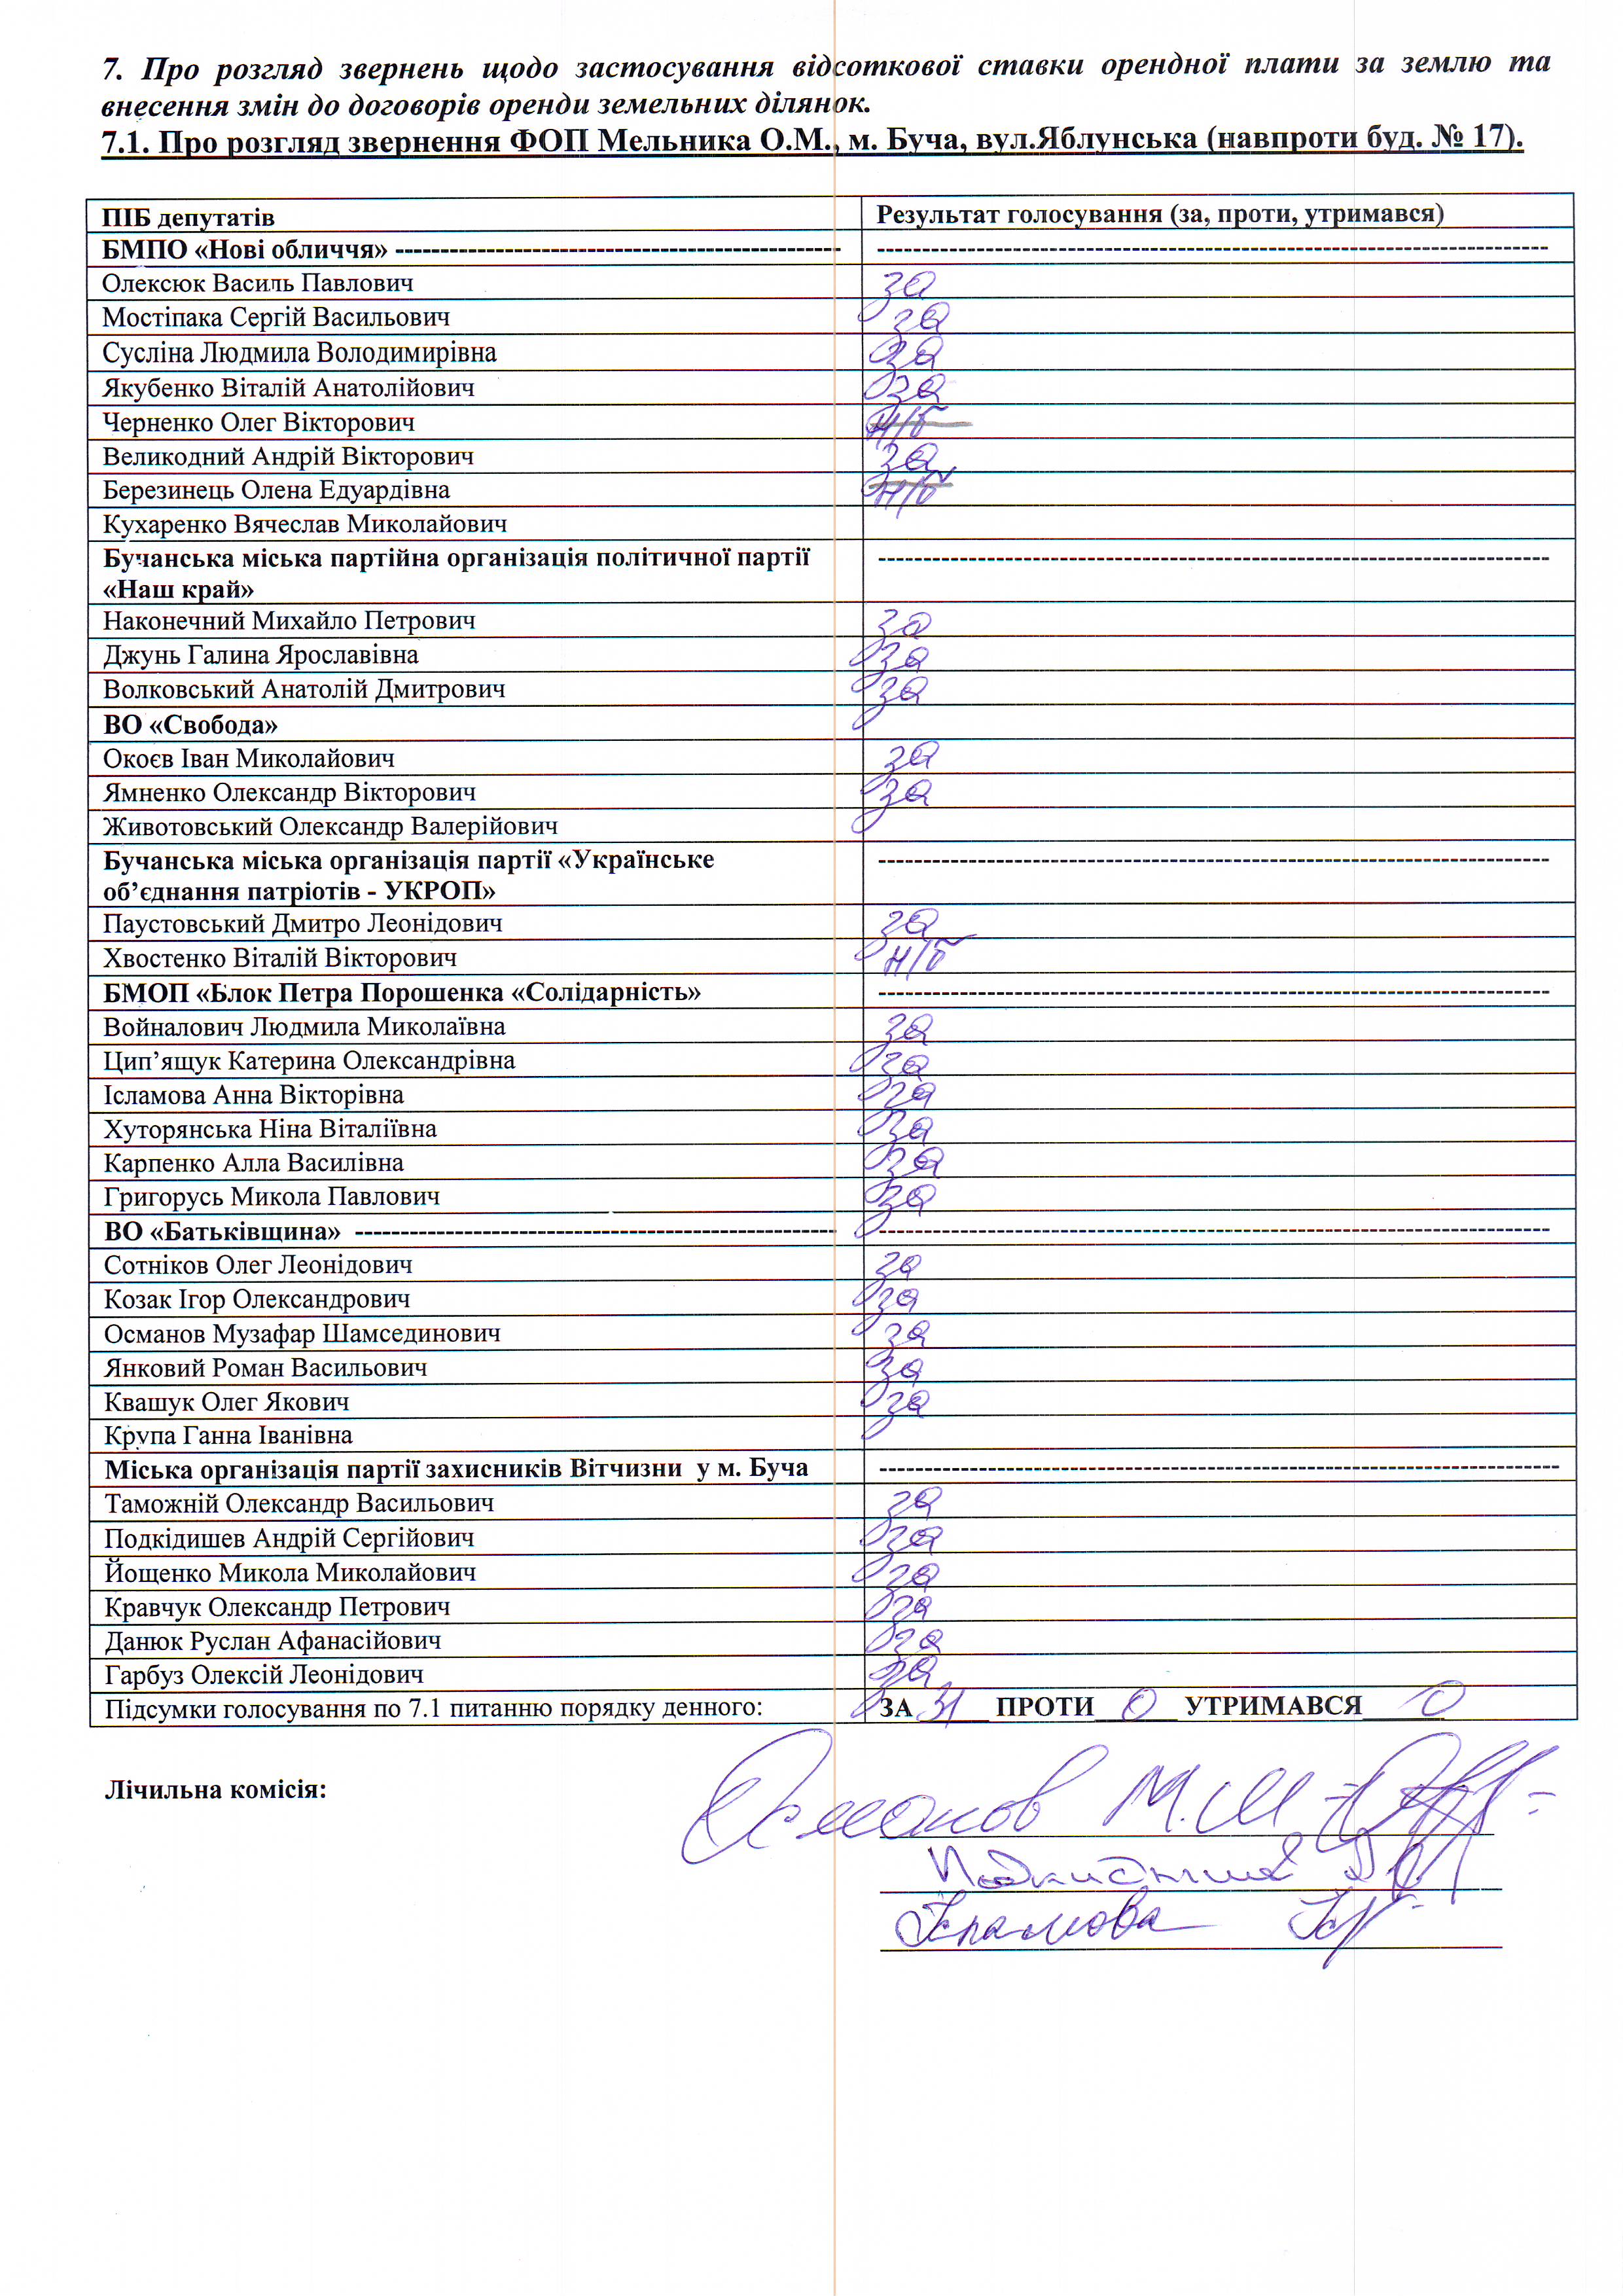 7. Про розгляд звернень щодо застосування відсоткової ставки орендної плати за землю та
внесення змін до договорів оренди земельних ділянок.
7.1. Про розгляд звернення ФОП Мельника О.М., м. Буча, вул.Яблунська (навпроти буд. № 17).
ПІБ депутатів Результат голосування (за, проти, утримався)
БМПО «Нові обличчя»
Олексюк Василь Павлович за
Мостіпака Сергій Васильович за
Сусліна Людмила Володимирівна за
Якубенко Віталій Анатолійович за
Черненко Олег Вікторович н/б
Великодний Андрій Вікторович за
Березинець Олена Едуардівна н/б
Кухаренко Вячеслав Миколайович
Бучанська міська партійна організація політичної партії
«Наш край»
Наконечний Михайло Петрович за
Джунь Галина Ярославівна за
Волковський Анатолій Дмитрович за
ВО «Свобода»
Окоєв Іван Миколайович за
Ямненко Олександр Вікторович за
Животовський Олександр Валерійович
Бучанська міська організація партії «Українське
об’єднання патріотів - УКРОП»
Паустовський Дмитро Леонідович за
Хвостенко Віталій Вікторович н/б
БМОП «Блок Петра Порошенка «Солідарність»
Войналович Людмила Миколаївна за
Цип’ящук Катерина Олександрівна за
Ісламова Анна Вікторівна за
Хуторянська Ніна Віталіївна за
Карпенко Алла Василівна за
Григорусь Микола Павлович за
ВО «Батьківщина»
Сотніков Олег Леонідович за
Козак Ігор Олександрович за
Османов Музафар Шамсединович за
Янковий Роман Васильович за
Квашук Олег Якович за
Крупа Ганна Іванівна
Міська організація партії захисників Вітчизни у м. Буча
Таможній Олександр Васильович за
Подкідишев Андрій Сергійович за
Йощенко Микола Миколайович за
Кравчук Олександр Петрович за
Данюк Руслан Афанасійович за
Гарбуз Олексій Леонідович за
Підсумки голосування по 7.1 питанню порядку денного: ЗА 31 ПРОТИ 0 УТРИМАВСЯ 0
Лічильна комісія:
Османов М.Ш